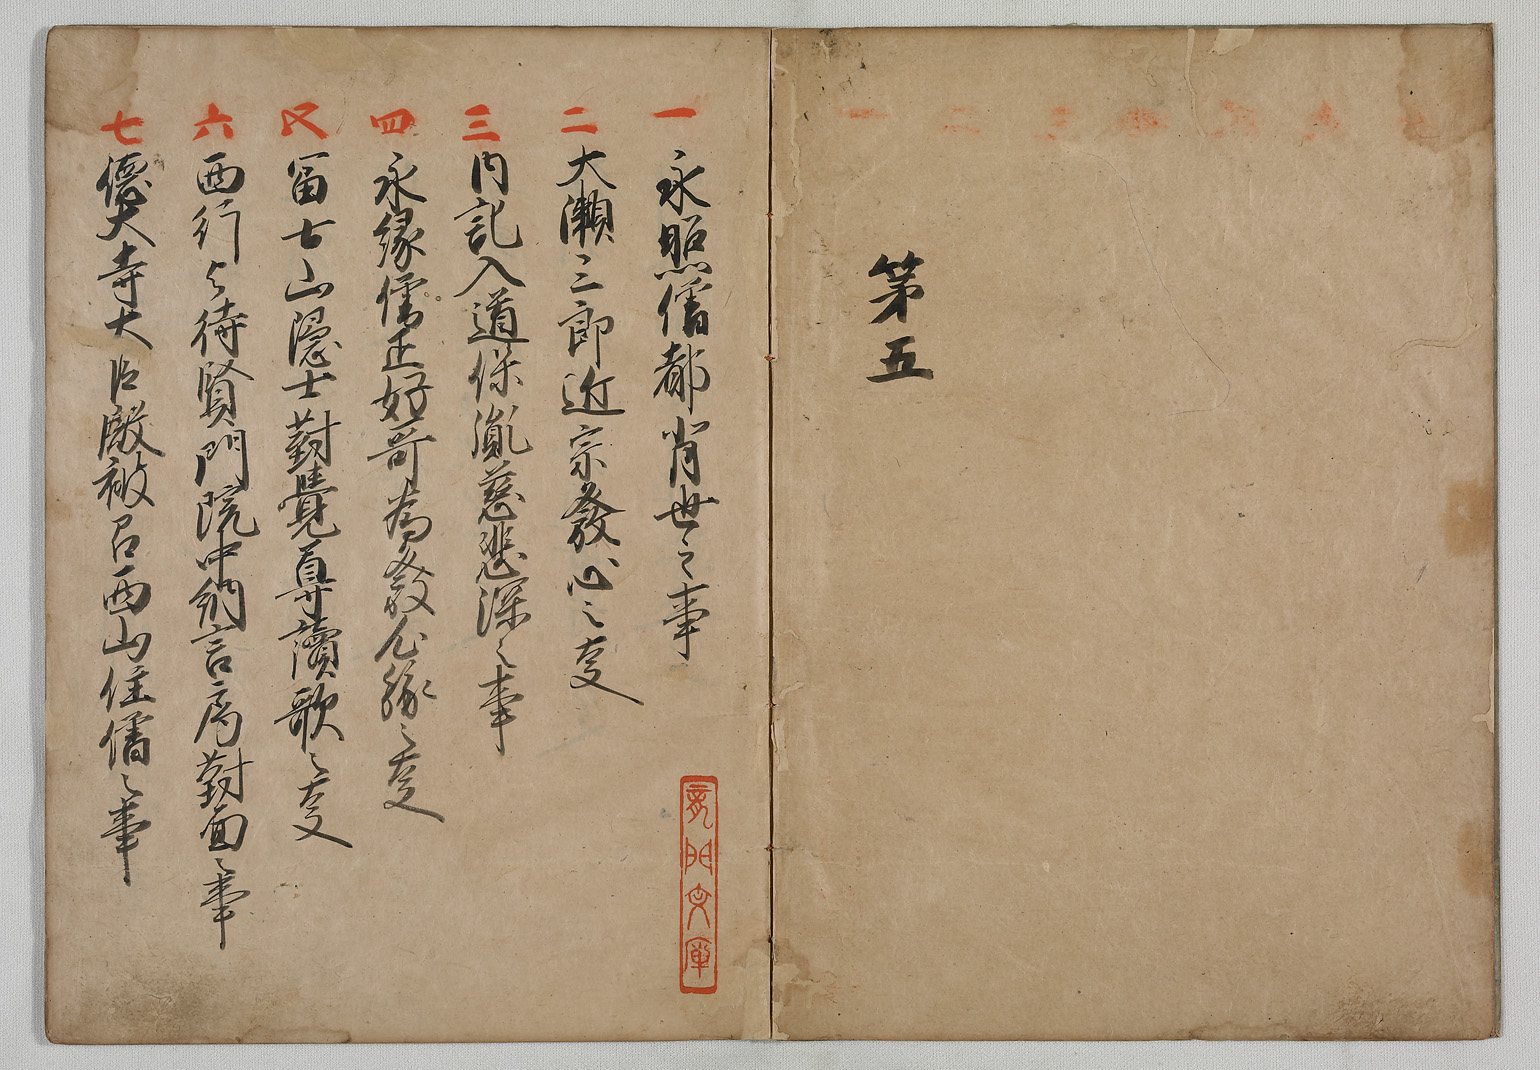 第五
一 永照僧都背世之事
二 大瀬三郎近宗發心之叓
三 内記入道保胤慈悲深之事
四 永縁僧正好哥為發心縁之叓
五 冨士山隠士對覺尊讀歌之叓
六 西行与待賢門院中納言局對面之事
七 德大寺大臣殿被召西山住僧之事
龍門文庫